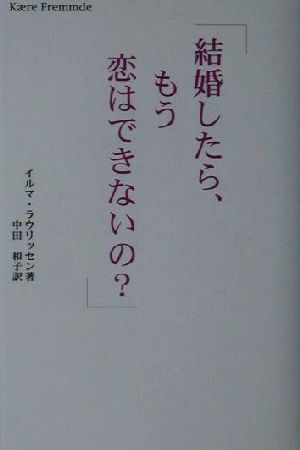 Kære Fremmde
「結婚したら、
もう
恋はできないの?」
イルマ・ラウリッセン著
中田 和子訳